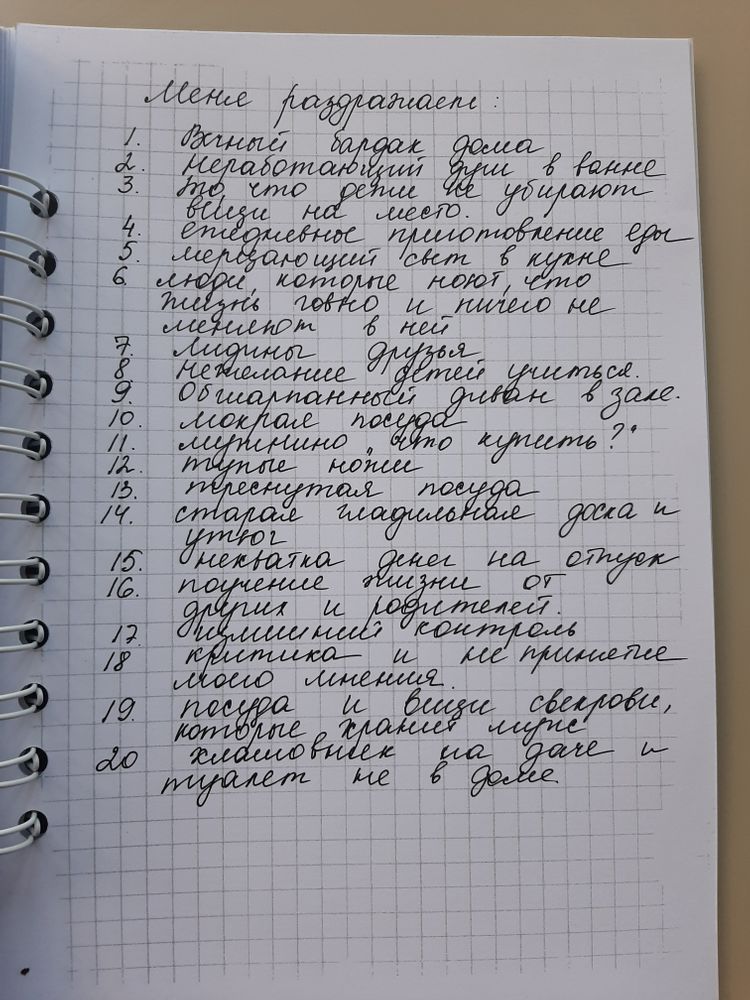 Меня раздражает:
1. Вечный бардак дома
2. Неработающий душ в ванне
3. то, что дети не убирают
вещи на место.
4. ежедневное приготовление еды
5. мерцающий свет в кухне
6. люди, которые ноют, что
жизнь говно и ничего не
меняют в ней
7. Лидины друзья
8 Нежелание детей учиться.
9. Обшарпанный диван в зале.
10. мокрая посуда
11. мужнино „что купить?"
12. тупые ножи
13. треснутая посуда
14. старая гладильная доска и
утюг
15. нехватка денег на отпуск
16. поучение жизни от
других и родителей.
17. излишний контроль
18 критика и не принятие
моего мнения.
19. посуда и вещи свекрови,
которые хранит муж
20 хламовник на даче и
туалет не в доме.